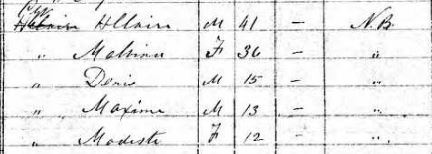 Hllaire M 41 — N.B
" Malvina F 36 — "
" Denis M 15 — "
" Maxime M 13 — "
" Modeste F 12 — "